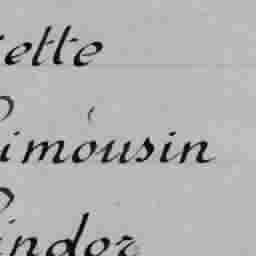 ette
Limousin
indor